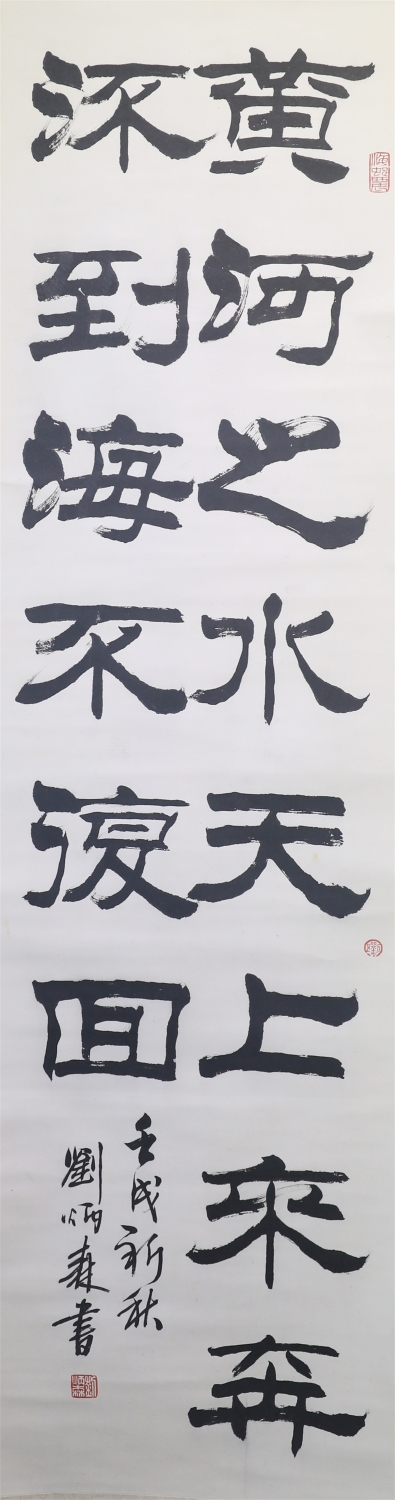 黃河之水天上來奔
流到海不復回
壬戌新秋
劉炳森書